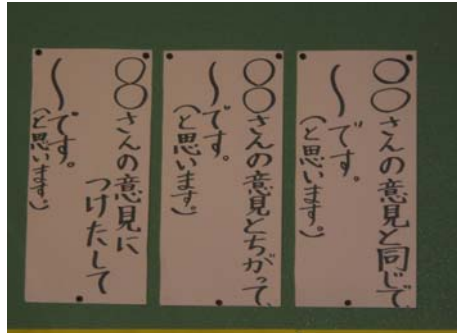 ○○さんの意見と同じで、
〜です。
(と思います。)
○○さんの意見とちがって、
〜です。
(と思います。)
○○さんの意見に
つけたして
〜です。
(と思います。)